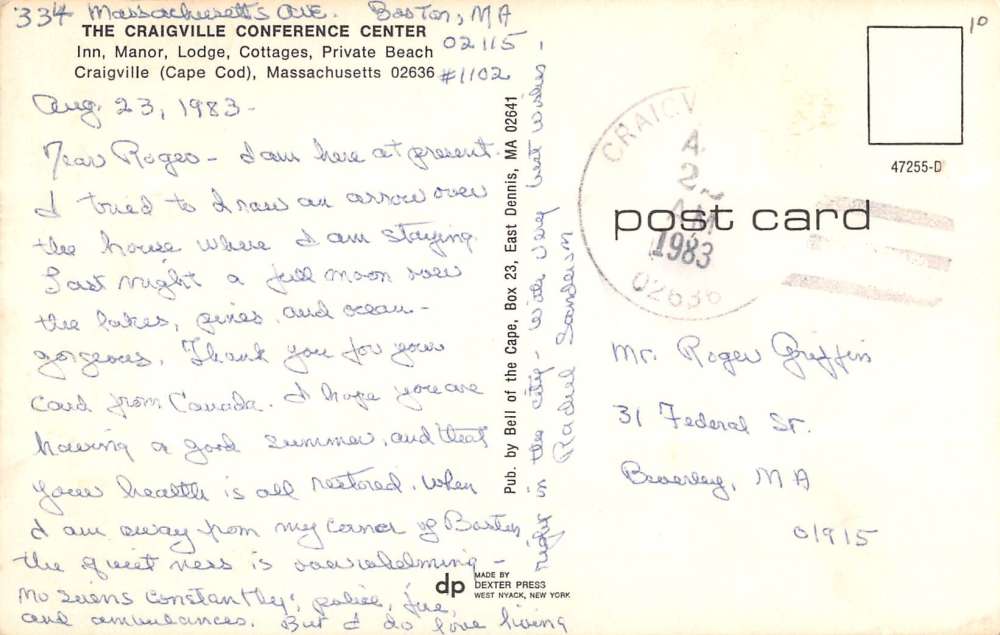 334 Massachusetts Ave. Boston, MA
02115
#1102
THE CRAIGVILLE CONFERENCE CENTER
Inn, Manor, Lodge, Cottages, Private Beach
Craigville (Cape Cod), Massachusetts 02636
Aug. 23, 1983 -
Dear Roger - I am here at present.
I tried to draw an arrow over
the house where I am staying.
Last night a full moon over
the lakes, pines, and ocean -
gorgeous. Thank you for your
card from Canada. I hope you are
having a good summer, and that
your health is all restored. When
I am away from my corner of Boston,
the quietness is overwhelming -
no sirens constantly; police, fire,
and ambulances. But I do love living
right in the city - With very best wishes,
Rachel
Pub. by Bell of the Cape, Box 23, East Dennis, MA 02641
dp
MADE BY
DEXTER PRESS
WEST NYACK, NEW YORK
10
47255-D
post card
CRAIGV
A
2
AM
1983
02636
Mr. Roger Griffin
31 Federal St.
Beverley, MA
01915